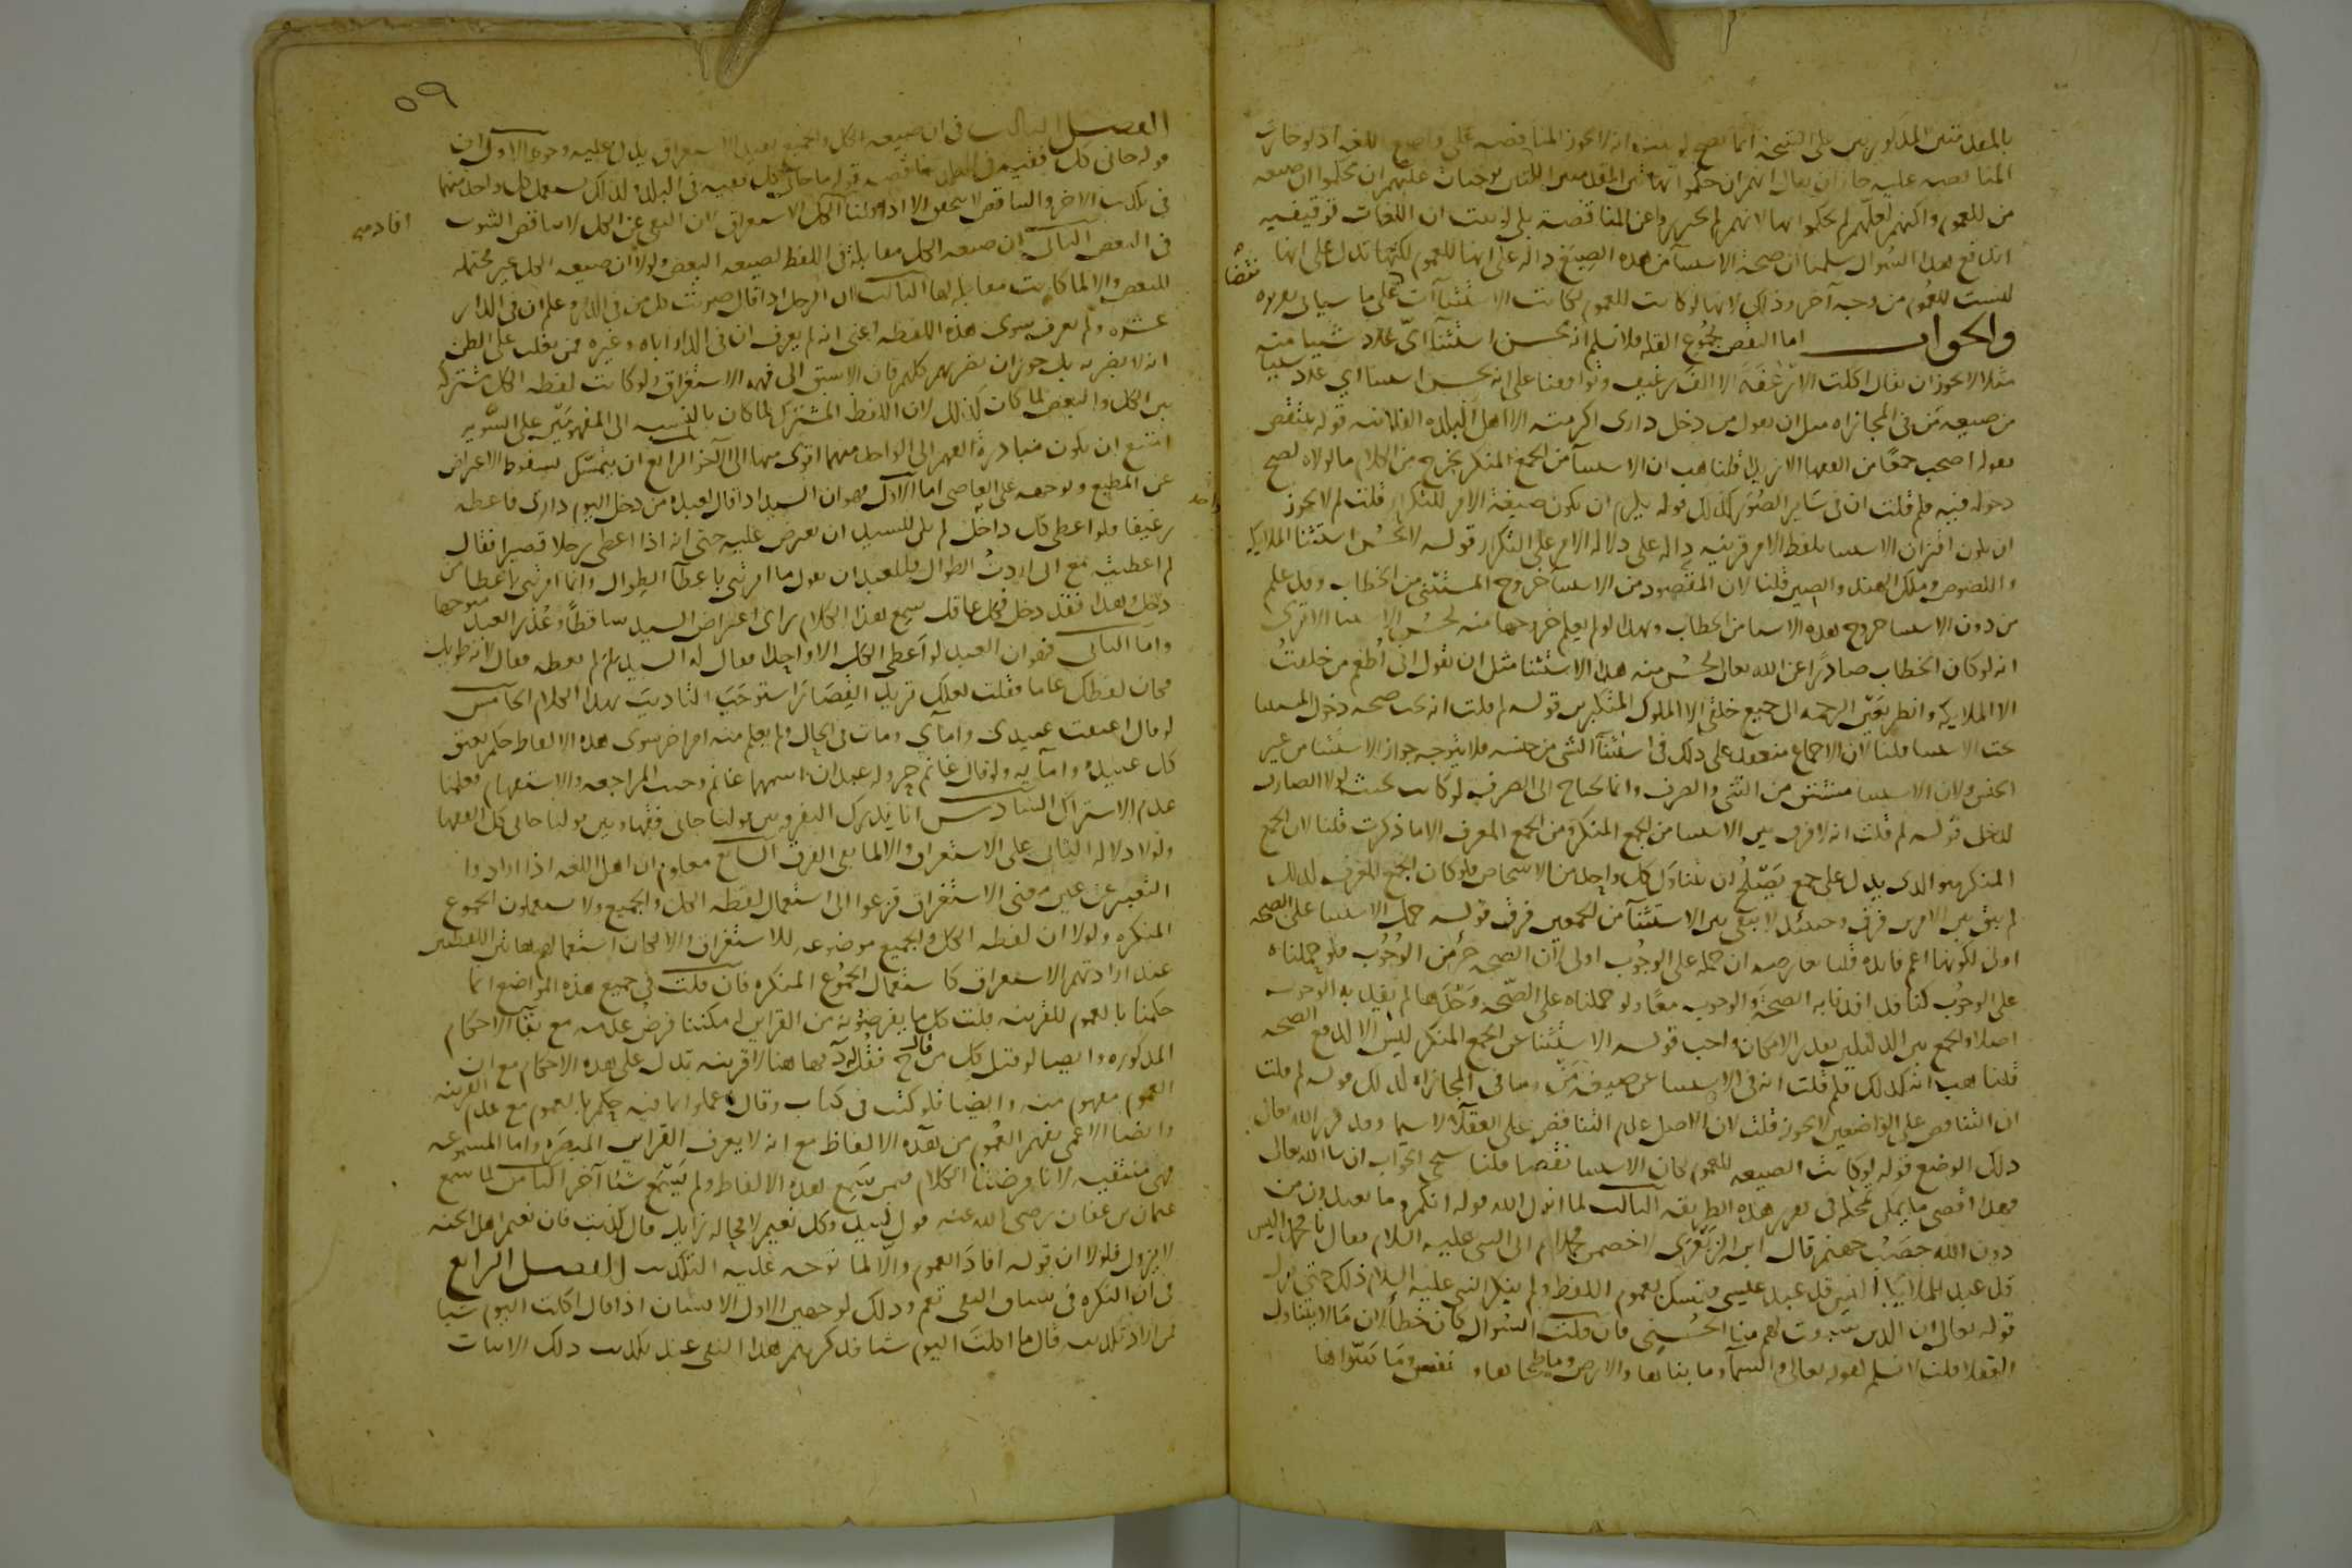 بالمقدمتين المذكورتين على النتيجة انما يصح لو انه لا يجوز المناقضه على واضع اللغه اذ لو جازت
المناقضه عليه جاز ان يقال انهم حكموا بهاتين المقدمتين اللتين توجبان عليهم ان يحكموا ان صيغه
من للعموم ولكنهم لعلهم لم يحكموا بها لانهم لم يحترزوا عن المناقضة بلى لو ثبت ان اللغات توقيفيه
اندفع هذا السوال سلمنا ان صحة الاستثنا من هذه الصيغ داله على انها للعموم لكنها تدل على انها
ليست للعموم من وجه آخر وذلك لانها لو كانت للعموم لكانت الاستثناآت نقضا على ما سياتى تقريره
والجواب اما النقض بجموع القله فلا نسلم انه يحسن استثنآ اىّ عدد شينا منه
مثلا لا يجوز ان يقال اكلت الارغفة الا الف رغيف وتوافقنا على انه يحسن استثنا اي عدد شينا
من صيغه مَن فى المجازاه مثل ان يقول من دخل دارى اكرمته الا اهل البلده الفلانيه قوله ينتقض
بقوله اصحب جمعًا من الفقها الا زيدا قلنا هب ان الاستثنآ من الجمع المنكر يخرج من الكلام ما لولاه لصح
دخوله فيه فلم قلت ان فى سَاير الصُوَر كذلك قوله يلزم ان يكون صيغة الامر للتكرار قلت لم لا يجوز
ان يكون اقتران الاستثنا بلفظ الامر قرينه داله على دلاله الامر على التكرار قوله لا يحسُن استثنا الملايكه
واللصوص وملك الهند والصين قلنا لان المقصود من الاستثنآ خروج المستثنى من الخطاب وقد علم
من دون الاستثنا خروج هذه الاشيا من الخطاب ولهذا لو لم يعلم خروجها منه لحسُن الاستثنا الا ترى
انه لو كان الخطاب صادرًا عن الله تعالى لحسُن منه هذا الاستثنا مثل ان يقول انى اُطعِم من خلقتُ
الا الملايكه وانظر بعَين الرحمه الى جميع خلقى الا الملوك المتكبرين قوله لم قلت انه يجب صحه دخول المستثنا
تحت الاستثنا قلنا لان الاجماع منعقد على ذلك فى استثنآ الشى من جنسه فلا يتوجه جواز الاستثنا من غير
الجنس ولان الاستثنا مشتق من الثنى والصرف وانما يحتاج الى الصرف لو كان بحيث لولا الصارف
لدخل قوله لم قلت انه لا فرق بين الاستثنا من الجمع المنكر ومن الجمع المعرف الا ما ذكرت قلنا لان الجمع
المنكر هو الذى يدل على جمع يَصْلحُ ان يتناوَل كل واحد من الاشخاص فلو كان الجمع المعرف كذلك
لم يبق بين الامرين فرق وحينئذ لا يبقى بين الاستثنآ من الجمعين فرق قوله حمل الاستثنا على الصحه
اولى لكونها اعم فايده قلنا يعارضه ان حمله على الوجوب اولى لان الصحه جزء من الوجُوب فلو حملناه
على الوجوُب كنا قد افدنا به الصحةَ والوجوب معًا ولو حملناه على الصّحه وَحْدَها لم يفد به الوجوب
اصلا والجمع بين الدليلين بقدر الامكان واجب قوله الاستثنا عن الجمع المنكر ليس الا لدفع الصحه
قلنا هب انه كذلك فلم قلت انه فى الاستثنا عن صيغه مَنْ وما فى المجازاه كذلك قوله لم قلت
ان التناقض على الواضعين لا يجوز قلت لان الاصل عدم التناقض على العقلآ لا سيما وقد قرر الله تعالى
ذلك الوضع قوله لو كانت الصيغه للعموم لكان الاستثنا نقضا قلنا سيجى الجواب ان شا الله تعالى
فهذا اقصى ما يمكن تمحله فى تقرير هذه الطريقه الثالث لما انزل الله قوله انكم وما تعبدون من
دون الله حَصَبُ جهنم قال ابن الزبَعْرَى لاخصمن محمدا ثم اتى النبى عليه السلام فقال يا محمد اليس
قد عُبد الملائكة اليس قد عُبد عيسى فتمسك بعموم اللفظ ولم ينكر النبى عليه السلام ذلك حتى نزل
قوله تعالى ان الذين سَبقت لهم منا الحُسْنى فان قلت السُوال كان خطأ لان مَا لا يتناول
العقلا قلت لا نسلم لقوله تعالى والسمآ وما بناها والارض وما طحاها ونفس ومَا سَوّاها
٥٩
الفصل الثالث فى ان صيغه الكل والجميع يفيد الاستغراق يدل عليه وجوه الاول ان
قوله جانى كل فقيه فى البلد يناقضه قوله ما جانى كل فقيه فى البلد ولذلك يستعمل كل واحد منهما
فى تكذيب الاخر والتناقض لا يتحقق الا اذا افاد الكل الاستغراق لان النفى عن الكل لا يناقض الثبوت
فى البعض الثانى ان صيغه الكل مقابلة فى اللفظ لصيغه البعض ولولا ان صيغه الكل غير محتمله
للبعض والا لما كانت مقابله لها الثالث ان الرجل اذا قال ضربت كل من فى الدار وعلم ان فى الدار
عشره ولم يعرف سوى هذه اللفظه اعنى انه لم يعرف ان فى الدار اباه وغيره ممن يغلب على الظن
انه لا يضربه بل جوز ان يضربهم كلهم فان الاسبق الى فهمه الاستغراق ولو كانت لفظه الكل مشتركه
بين الكل والبعض لما كان كذلك لان اللفظ المشترك لما كان بالنسبه الى المفهومَيْن على السّويه
امتنع ان يكون مبادرة الفهم الى الواحد منهما اقوى منها الى الآخر الرابع ان يتمسّك بسقوط الاعتراض
عن المطيع وتوجهه على العاصى اما الاول فهو ان السيد اذا قال لعبده من دخل اليوم دارى فاعطه
رغيفا فلو اعطى كل داخل لم يكن للسيد ان يعترض عليه حتى انه اذا اعطى رجلا قصيرا فقال
لم اعطيته مع انى اردتُ الطوال فللعبد ان يقول ما امرتنى باعطآ الطوال وانما امرتنى باعطا من
دخل وهذا فقد دخل فكل عاقل سمع هذا الكلام راى اعتراض السيد ساقطًا وعُذر العبد متوجها
واما الثانى فهو ان العبد لو اَعطى الكل الا واحدا فقال له السيد لم لم تعطه فقال لانه طويل
وكان لفظك عاما فقلت لعلك تريد القِصَار استوجَبَ التاديب بهذا الكلام الخامس
لو قال اعتقت عبيدى وامآى ومات فى الحال ولم يعلم منه امر اخر سوى هذه الالفاظ حكم بعتق
كل عبيده وامآيه ولو قال غانم حر وله عبدان اسمهما غانم وجبت المراجعه والاستفهام فعلمنا
عدم الاشتراك السّادس انا ندرك التفرقه بين قولنا جانى فقهاء وبين قولنا جانى كل الفقها
ولولا دلاله الثانى على الاستغراق والا لما بقى الفرق السابع معلوم ان اهل اللغه اذا ارادوا
التعبير عن معنى الاستغراق فزعوا الى استعمال لفظه الكل والجميع ولا يستعملون الجموع
المنكره ولولا ان لفظه الكل والجميع موضوعه للاستغراق والا لكان استعمالهم هاتين اللفظتين
عند ارادتهم الاستغراق كاستعمال الجموُع المنكره فان قلت فى جميع هذه المواضع انما
حكمنا بالعموم للقرينه قلت كل ما يفرضونه من القراين امكننا فرض عدمه مع بقآ الاحكام
المذكوره وايضا لو قيل كل من قال ج فقُل لهُ د فها هنا لا قرينه تدل على هذه الاحكام مع ان
العموم مفهوم منه وايضا فلو كتب فى كتاب وقال اعملوا بما فيه حكم بالعموم مع عدم القرينه
وايضا الاعمى يفهم العُموم من هذه الالفاظ مع انه لا يعرف القراين المبصَره واما المسموعه
فهى منتفيه لانا فرضنا الكلام فيمن سَمع هذه الالفاظ ولم يَسْمَع شئا آخر الثامن لما سمع
عثمان بن عفان رضى الله عنه قول لبيد وكل نعيم لا محاله زايل قال كذبت فان نعيم اهل الجنه
لا يزول فلولا ان قوله افادَ العموم والّا لما توجه عليه التكذيب الفصل الرابع
فى ان النكره فى سياق النفى تعم وذلك لوجهين الاول ان الانسان اذا قال اكلت اليوم شيا
فمن اراد تكذيبه قال ما اكلت اليوم شيا فذكرهم هذا النفى عند تكذيب ذلك الاثبات